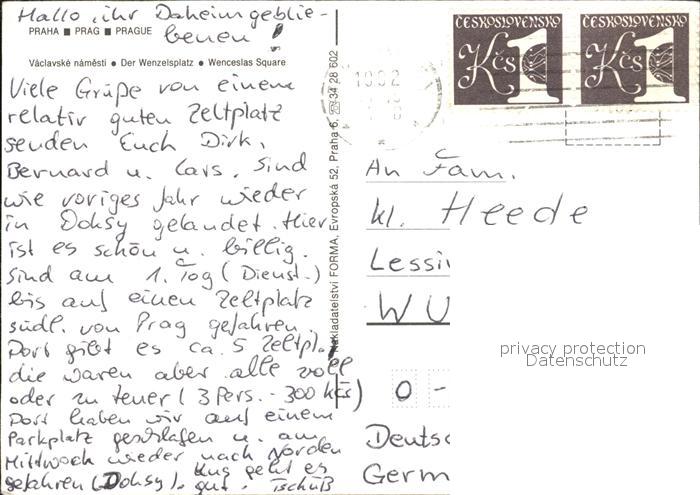 Hallo, ihr Daheimgeblie-
benen!
PRAHA ■ PRAG ■ PRAGUE
Václavské náměstí ● Der Wenzelsplatz ● Wenceslas Square
Viele Grüße von einem
relativ guten Zeltplatz
senden Euch Dirk,
Bernard u. Lars. Sind
wie voriges Jahr wieder
in Doksy gelandet. Hier
ist es schön u. billig.
Sind am 1. Tag (Dienst.)
bis auf einen Zeltplatz
südl. von Prag gefahren.
Dort gibt es ca. 5 Zeltpl.,
die waren aber alle voll
oder zu teuer (3 Pers. - 300 Kčs)
Dort haben wir auf einem
Parkplatz geschlafen u. am
Mittwoch wieder nach Norden
gefahren (Doksy). Uns geht es
gut. Tschüß
Nakladatelství FORMA, Evropská 52, Praha 6, ☎ 34 28 602
ČESKOSLOVENSKO
Kčs 1
ČESKOSLOVENSKO
Kčs 1
1992
An Fam.
Kl. Heede
Lessin
WU
O -
Deutsc
Germ
privacy protection
Datenschutz